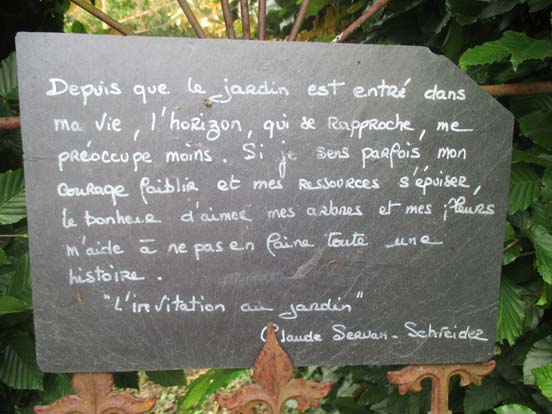 Depuis que le jardin est entré dans
ma vie, l'horizon, qui se rapproche, me
préoccupe moins. Si je sens parfois mon
courage faiblir et mes ressources s'épuiser,
le bonheur d'aimer mes arbres et mes fleurs
m'aide à ne pas en faire toute une
histoire.
"L'invitation au jardin"
Claude Servan-Schreider